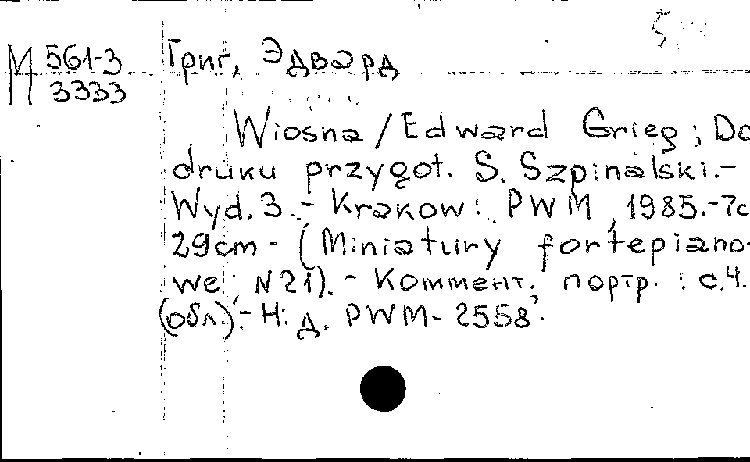 М 561-3
3333
Григ, Эдвард
Wiosna / Edward Grieg; Do
druku przygot. S. Szpinalski.-
Wyd. 3.- Krakow: PWM, 1985.-7с
29cm - (Miniatury fortepiano-
we; N21).- Коммент., портр.: с.4.
(обл.).- Н. д. PWM-2558.